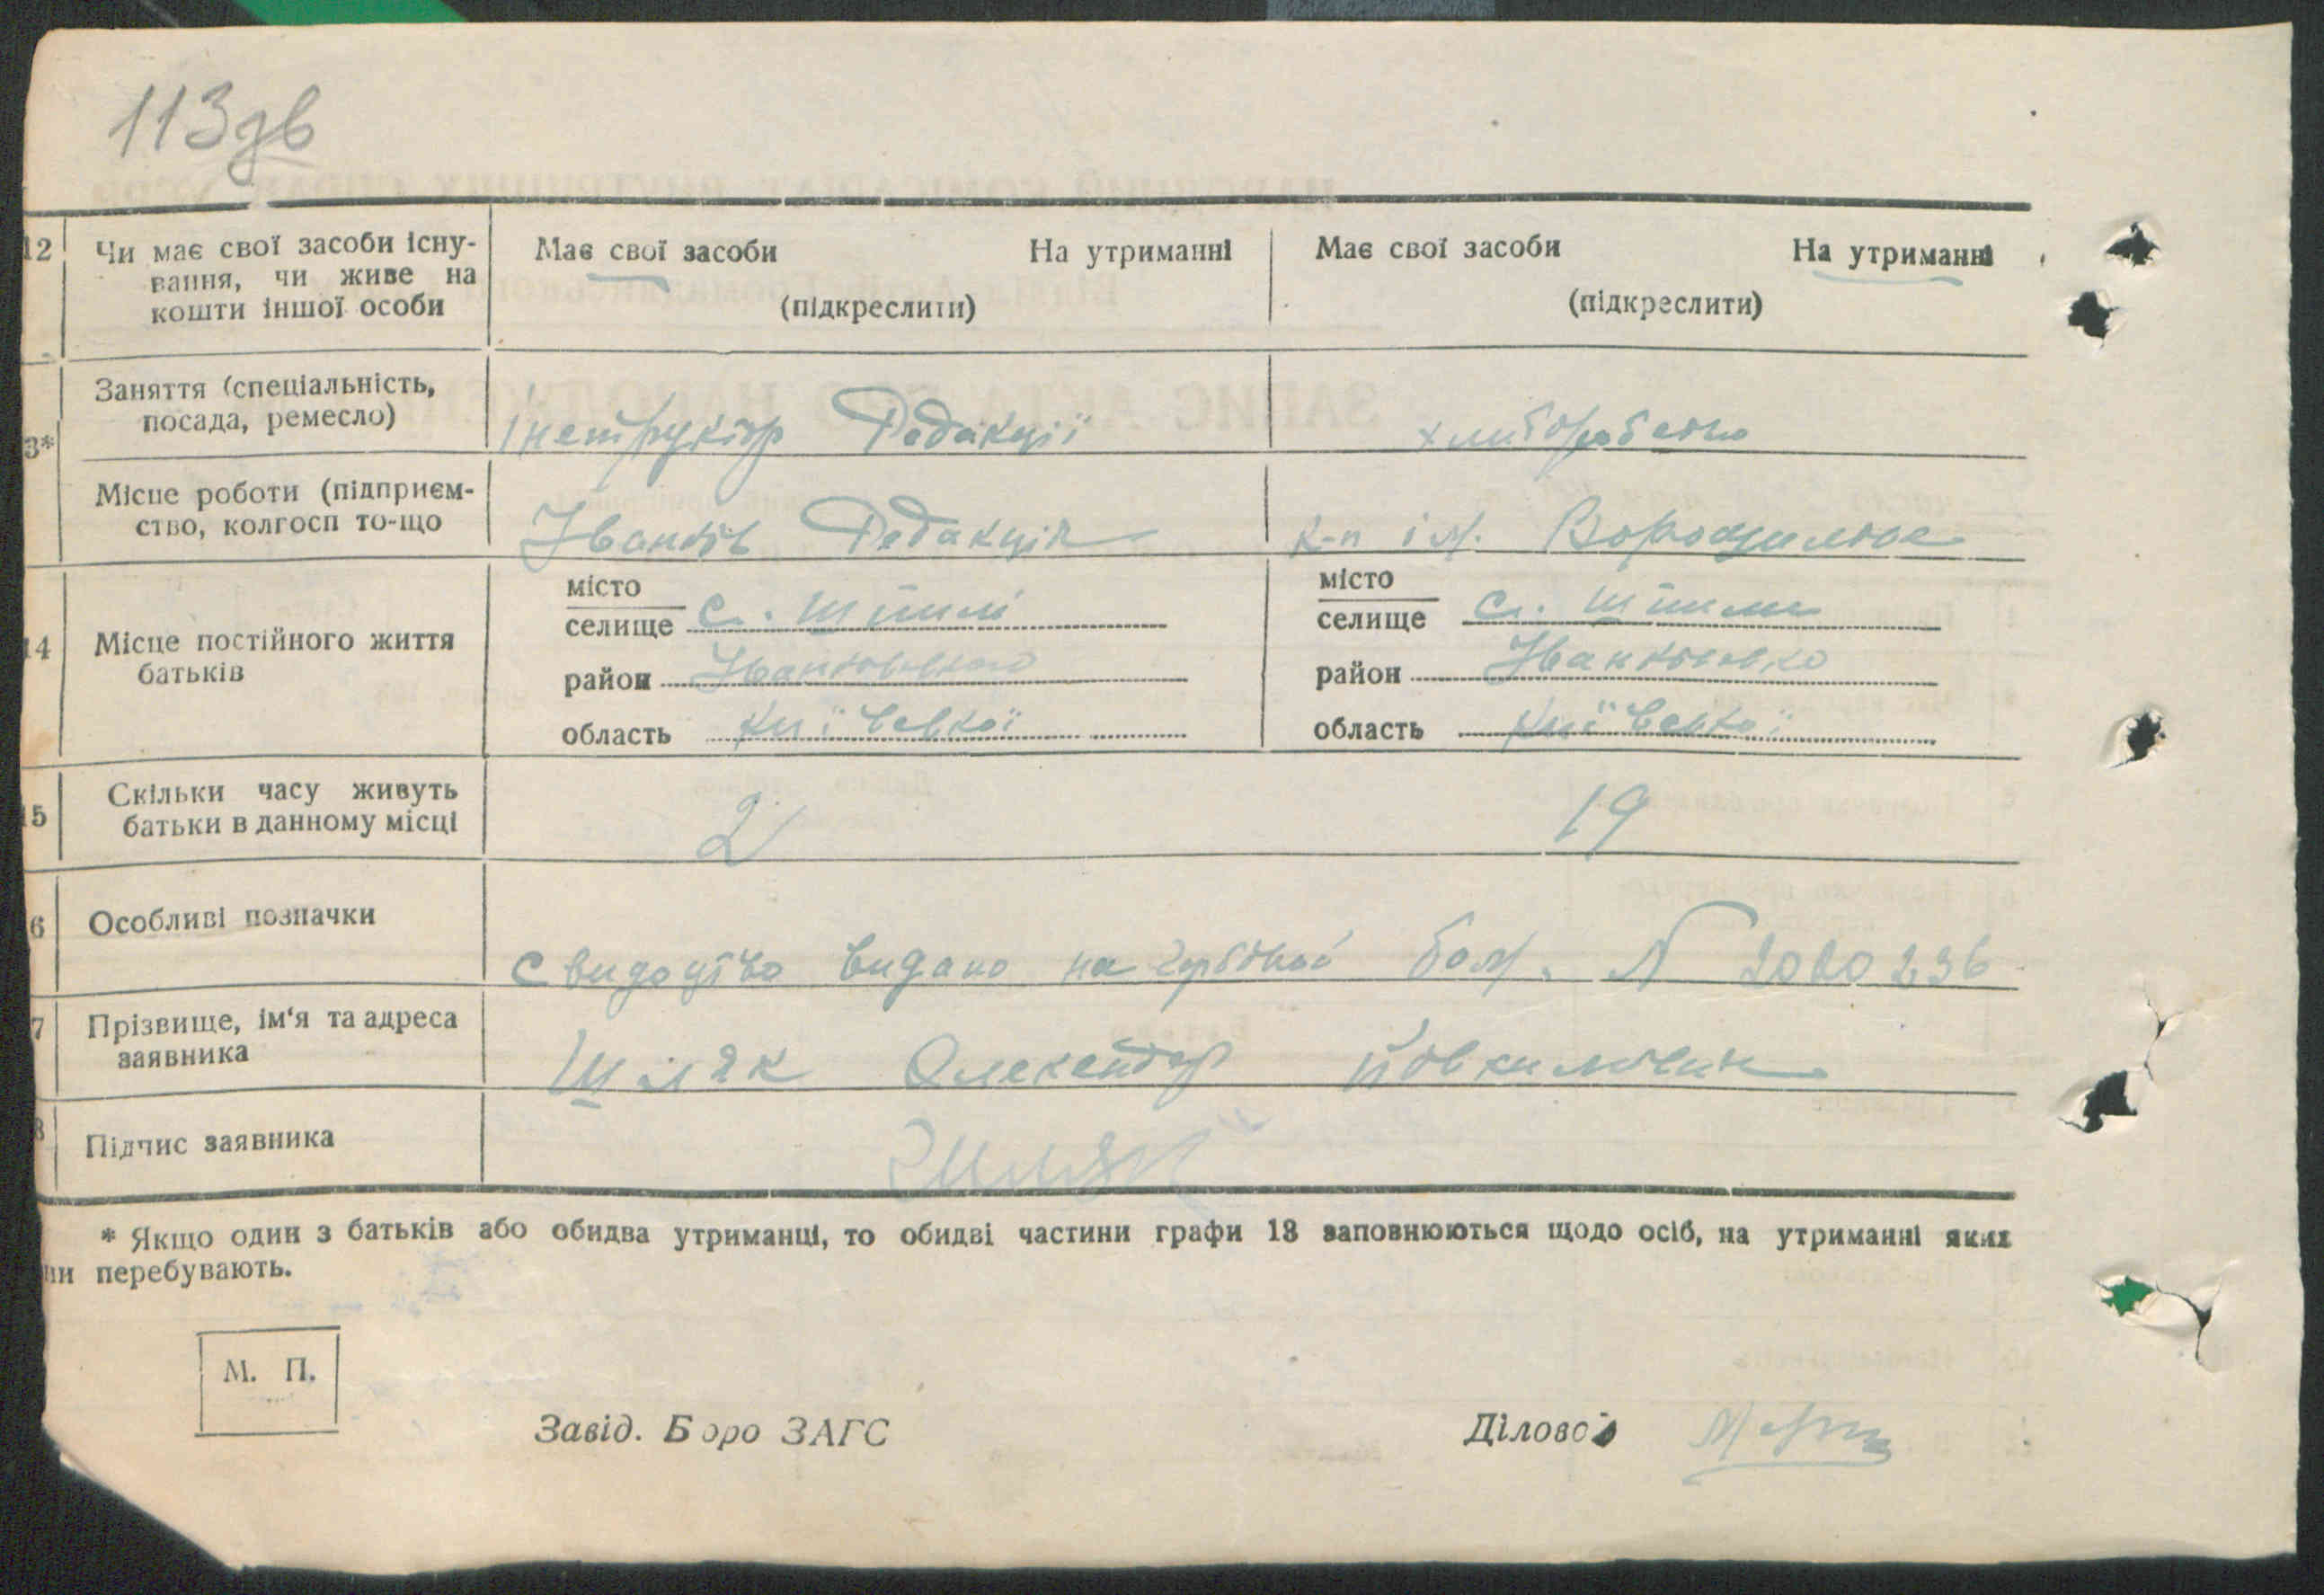 113 зв
12 Чи має свої засоби існу-
вання, чи живе на
кошти іншої особи
Має свої засоби На утриманні
(підкреслити)
Має свої засоби На утриманні
(підкреслити)
3*
Заняття (спеціальність,
посада, ремесло)
Інструктор Редакції
хлиборобство
Місце роботи (підприєм-
ство, колгосп то-що
Іванків Редакція
к-п ім. Ворошилова
14 Місце постійного життя
батьків
місто
селище с. Шпилі
район Іванківсько
область Київської
місто
селище с. Шпили
район Іванківсько
область Київської
15 Скільки часу живуть
батьки в данному місці
2
19
6 Особливі позначки
свидоцтво видано на гербовой бом. N 2020236
7 Прізвище, ім'я та адреса
заявника
Шляк Олександр
8 Підпис заявника
Шляк
* Якщо один з батьків або обидва утриманці, то обидві частини графи 13 заповнюються щодо осіб, на утриманні яких
ни перебувають.
М. П.
Завід. Бюро ЗАГС
Діловод